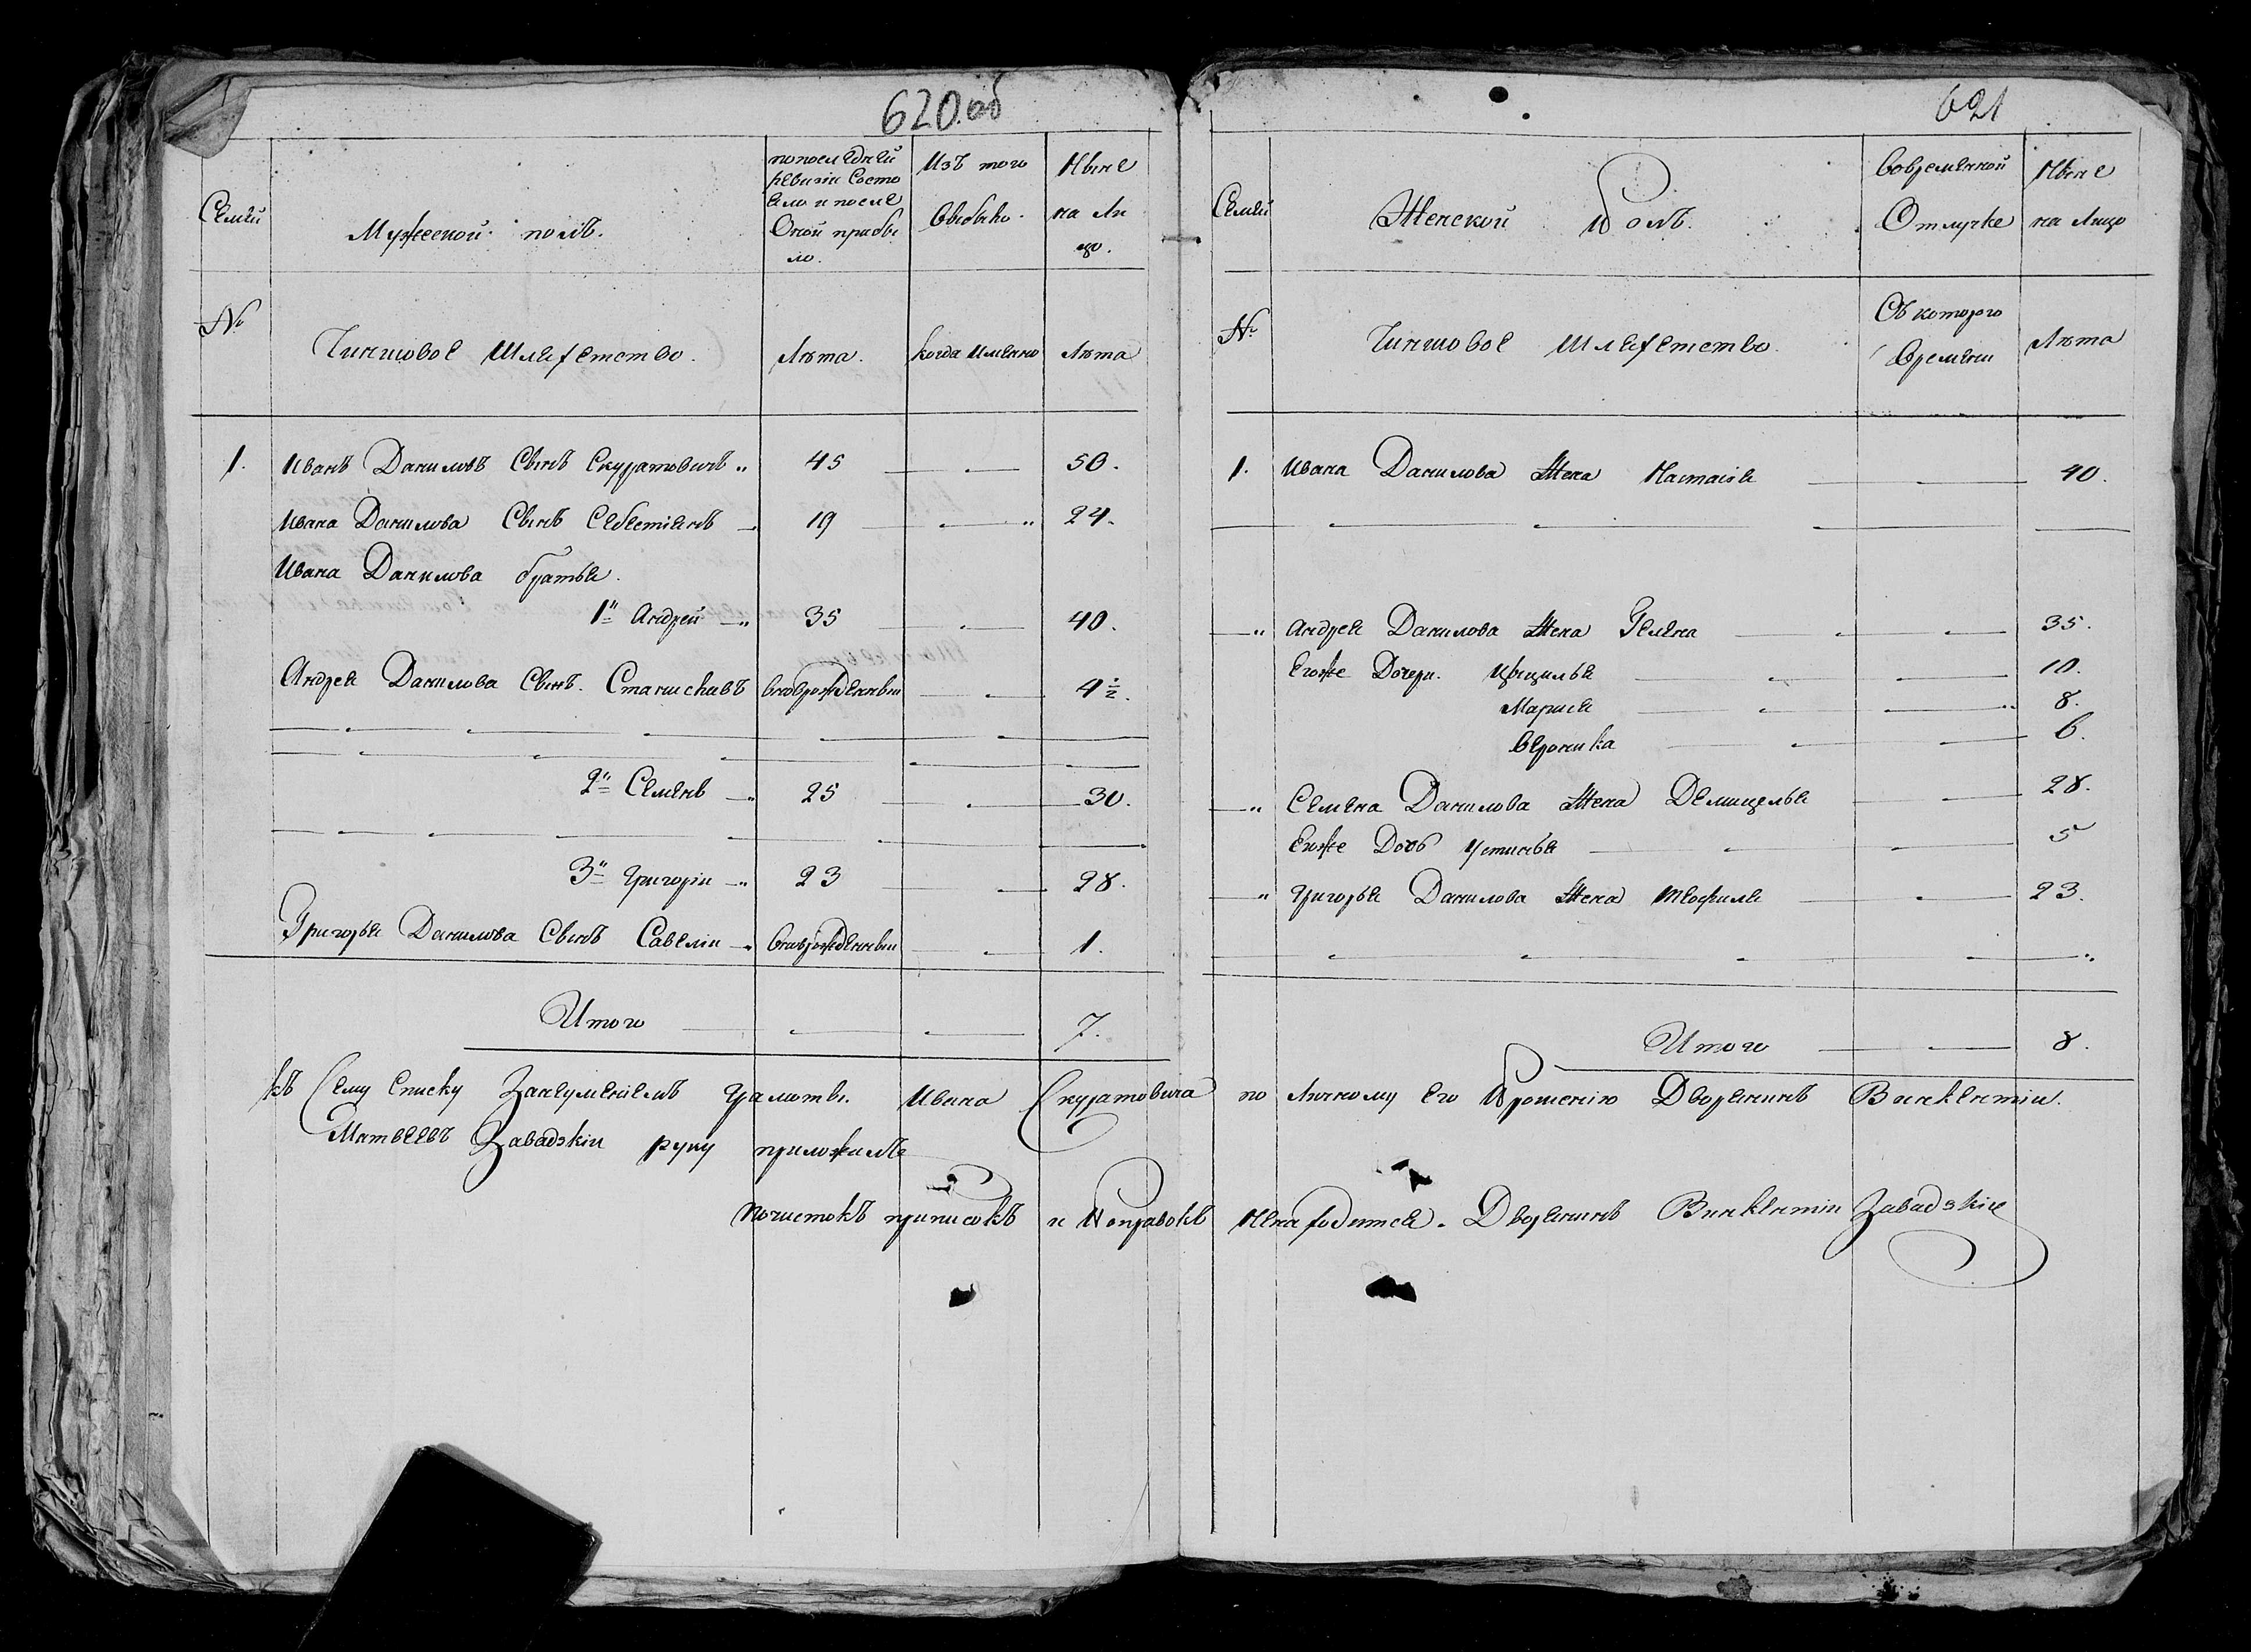 620.об
Семьи
Мужеской полъ.
попоследней
ревизіи Состо
яло и после
Оной прибы
ло.
Изъ того
выбыло.
Ныне
на Ли
цо.
№
Чиншовое Шляхетство.
Лѣта.
когда имянно
Лѣта
1. Иванъ Даниловъ Сынъ Скуратовичъ 45 50.
Ивана Данилова Сынъ Себестіянъ 19 24.
Ивана Данилова братья.
1й Андрей 35 40.
Андрея Данилова Сынъ. Станиславъ вновѣрожденный 4½.
2й Семянъ 25 30.
3й Григорій 23 28.
Григорья Данилова Сынъ Савелій вноврожденный 1.
Итого 7.
621
Семьи
Женской Полъ.
Вовремянной
Отлучке
Ныне
на Лицо
№
Чиншовое Шляхетство.
Съ которого
Времяни
Лѣта
1. Ивана Данилова Жена Настасія 40.
Андрея Данилова Жена Гелена 35.
Егоже Дочери. Цецилья 10.
Марися 8.
Вероника 6.
Семяна Данилова Жена Домицелья 28.
Егоже Дочь Устинья 5
Григорья Данилова Жена Теофиля 23.
Итого 8.
Къ Сему Списку Занеуменіемъ Грамоты. Ивана Скуратовича по Личному Его Прошенію Дворянинъ Викентій.
Матвеевъ Завадзкій руку приложилъ
Почистокъ приписокъ и Поправокъ Ненаходится. Дворянинъ Викентій Завадзкій